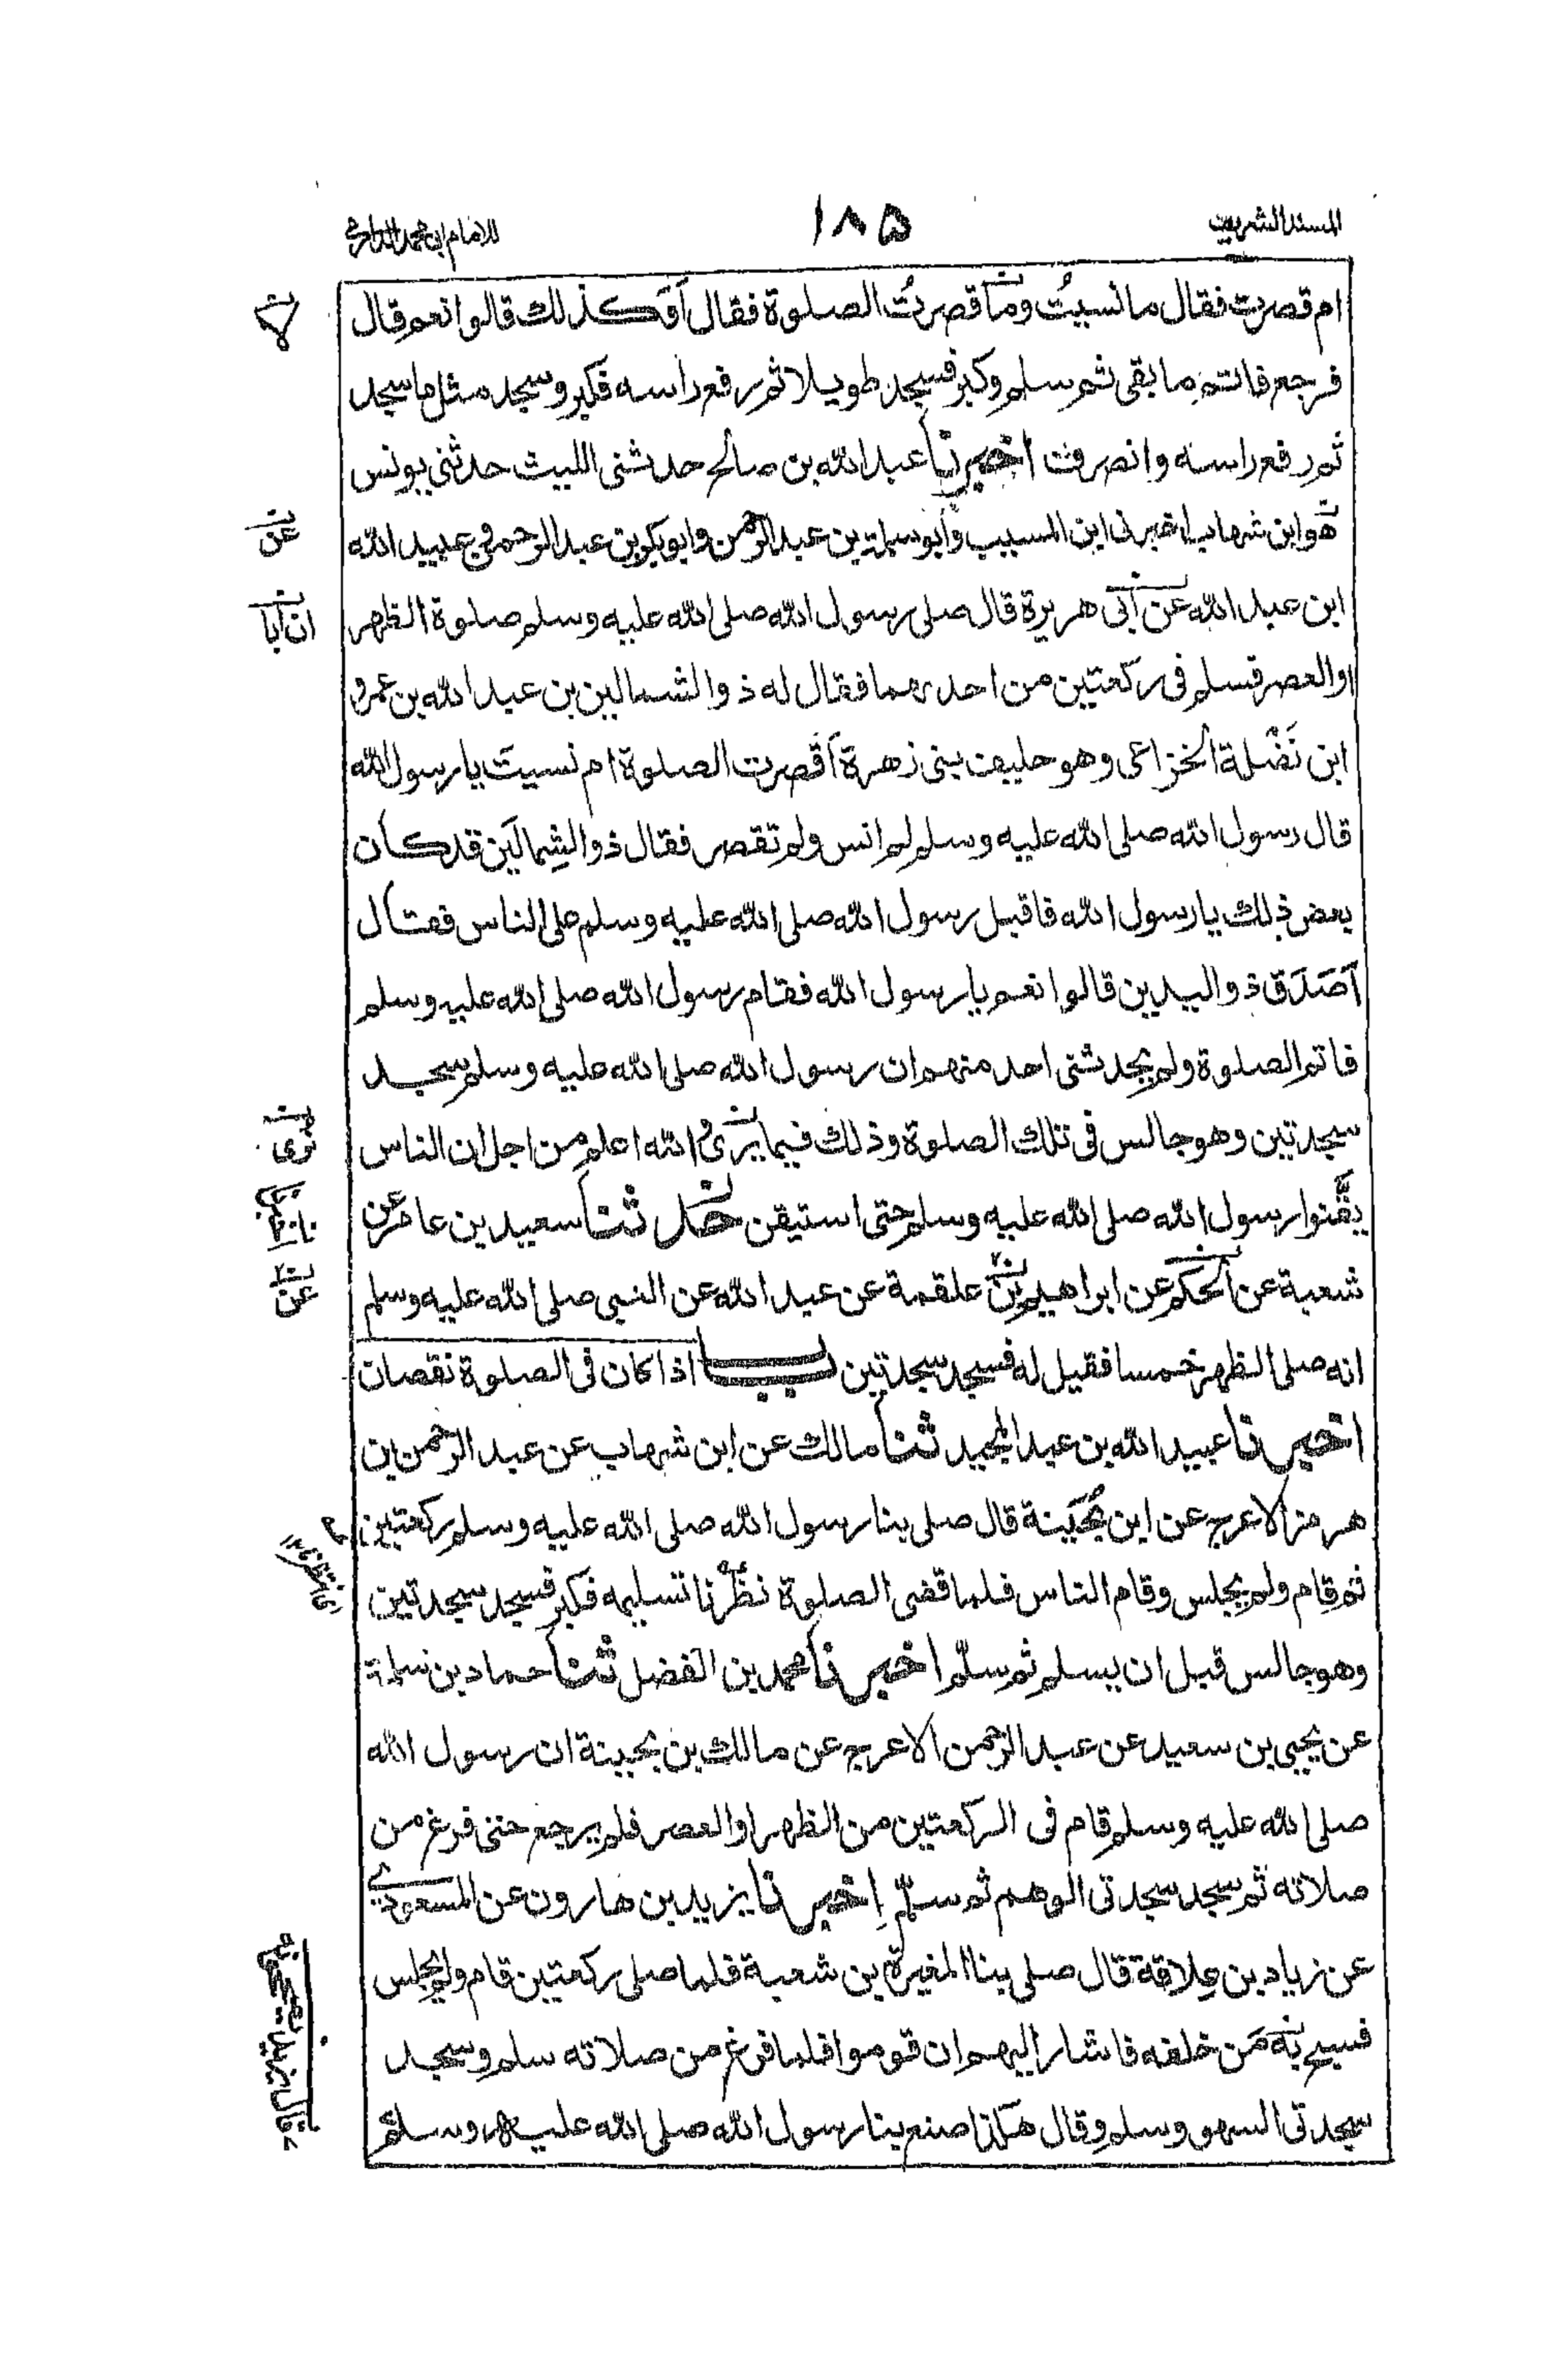 المسند الشريف
١٨٥
للامام ابى محمد الدارمى
ام قصرت فقال ما نسيتُ وما قصرتُ الصلوة فقال اَوَكذلك قالوا نعم قال
لا
فرجع فاتم ما بقى ثم سلم وكبر فسجد طويلا ثم رفع راسه فكبر وسجد مثل ما سجد
ثم رفع راسه وانصرف اخبرنا عبد الله بن صالح حدثنى الليث حدثنى يونس
هو ابن شهاب اخبرنى ابن المسيب وابو سلمة بن عبد الرحمن وابو بكر بن عبد الرحمن وعبيد الله
عن
ابن عبد الله عن ابى هريرة قال صلى رسول الله صلى الله عليه وسلم صلوة الظهر
ان ابا
او العصر فسلم فى ركعتين من احدهما فقال له ذو الشمالين بن عبد الله بن عمرو
ابن نَضْلة الخزاعى وهو حليف بنى زهرة اَقصرت الصلوة ام نسيتَ يا رسول الله
قال رسول الله صلى الله عليه وسلم لم انس ولم تقصر فقال ذو الشِمالَين قد كان
بعض ذلك يا رسول الله فاقبل رسول الله صلى الله عليه وسلم على الناس فقال
اَصَدَقَ ذو اليدين قالوا نعم يا رسول الله فقام رسول الله صلى الله عليه وسلم
فاتم الصلوة ولم يحدثنى احد منهم ان رسول الله صلى الله عليه وسلم سجد
سجدتين وهو جالس فى تلك الصلوة وذلك فيما يرى والله اعلم من اجل ان الناس
نرى
يقَّنوا رسول الله صلى الله عليه وسلم حتى استيقن حدثنا سعيد بن عامر عن
شعبة عن الحكم عن ابراهيم بن علقمة عن عبد الله عن النبى صلى الله عليه وسلم
عن
انه صلى الظهر خمسا فقيل له فسجد سجدتين باب اذا كان فى الصلوة نقصان
اخبرنا عبيد الله بن عبد المجيد ثنا مالك عن ابن شهاب عن عبد الرحمن بن
هرمز الاعرج عن ابن بُحَينة قال صلى بنا رسول الله صلى الله عليه وسلم ركعتين
ثم قام ولم يجلس وقام الناس فلما قضى الصلوة نظرنا تسليمه فكبر فسجد سجدتين
اى انتظرنا ١٢
وهو جالس قبل ان يسلم ثم سلّم اخبرنا محمد بن الفضل ثنا حماد بن سلمة
عن يحيى بن سعيد عن عبد الرحمن الاعرج عن مالك بن بحينة ان رسول الله
صلى الله عليه وسلم قام فى الركعتين من الظهر او العصر فلم يرجع حتى فرغ من
صلاته ثم سجد سجدتى الوهم ثم سلّم اخبرنا يزيد بن هارون عن المسعودى
عن زياد بن عِلاقة قال صلى بنا المغيرة بن شعبة فلما صلى ركعتين قام ولم يجلس
فسبح به مَن خلفه فاشار اليهم ان قوموا فلما فرغ من صلاته سلم وسجد
سجدتى السهو وسلم وقال هكذا صنع بنا رسول الله صلى الله عليه وسلم